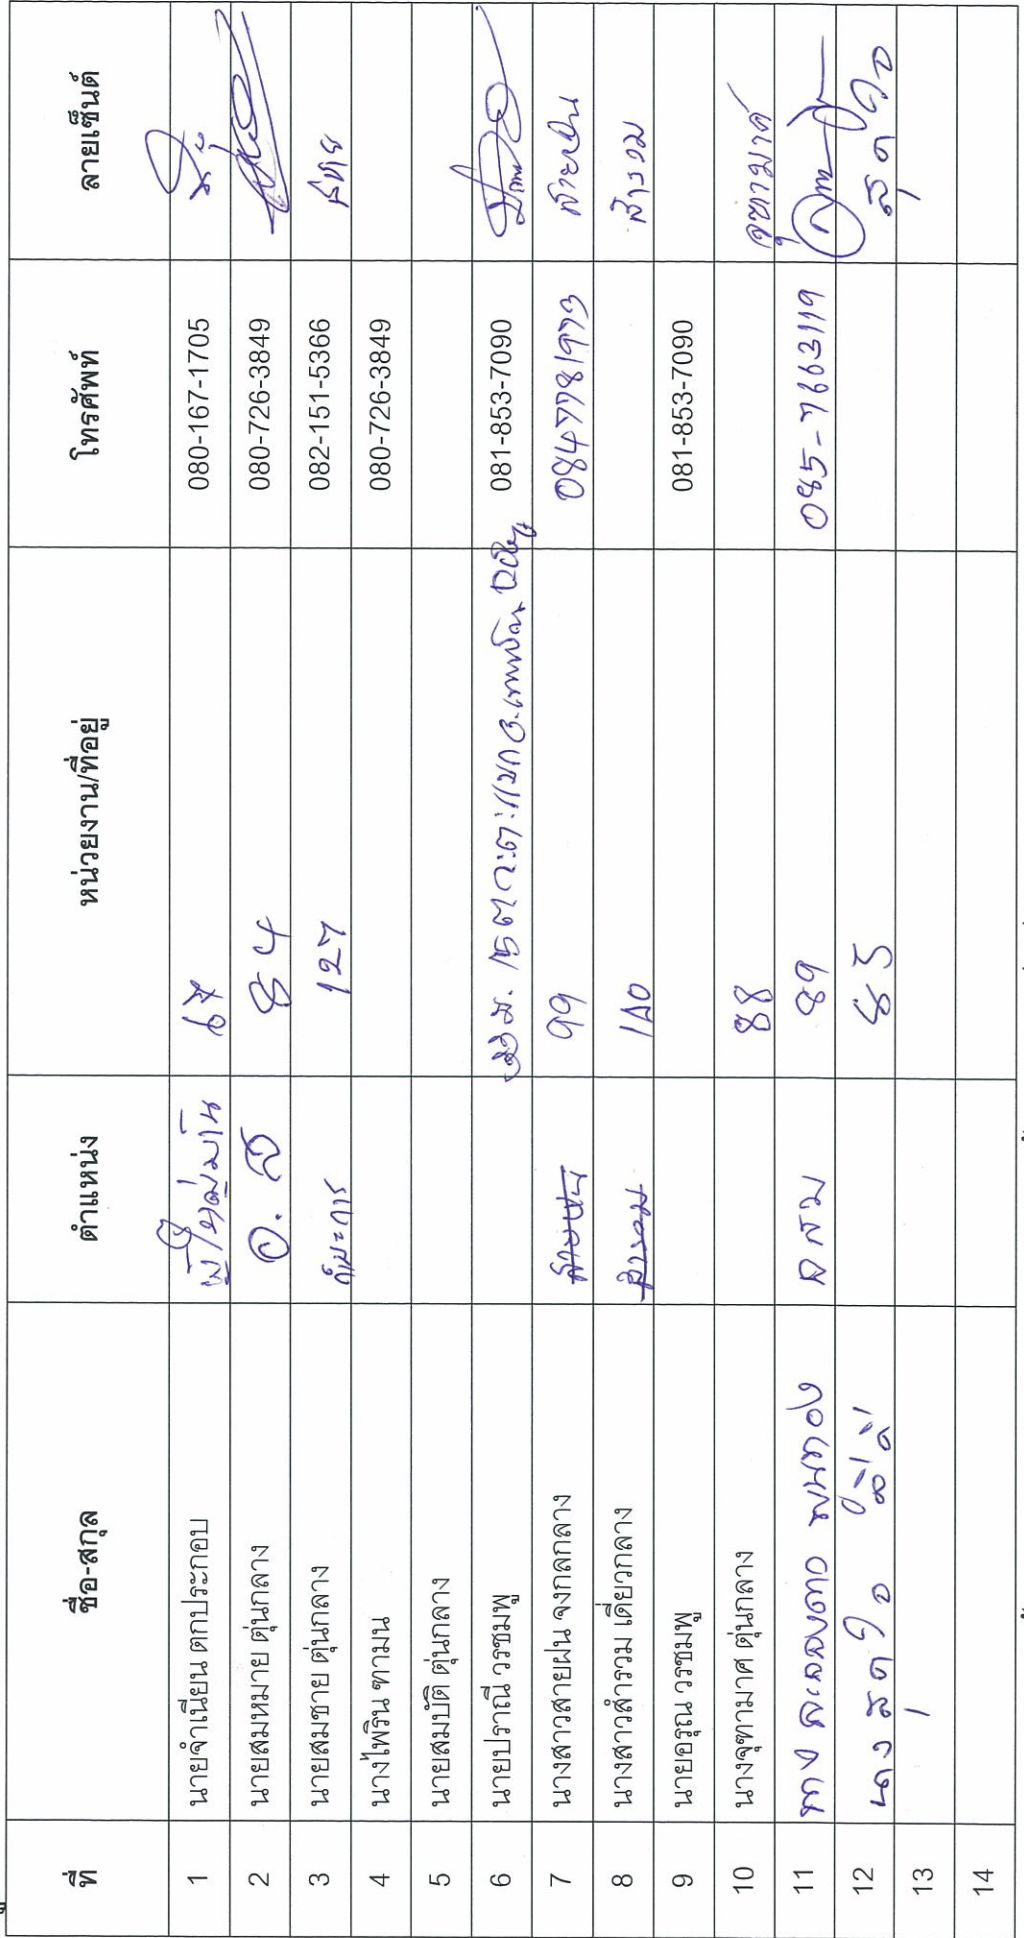 ที่ ชื่อ-สกุล ตำแหน่ง หน่วยงาน/ที่อยู่ โทรศัพท์ ลายเซ็นต์
1 นายจำเนียน ตกประกอบ 67 080-167-1705
2 นายสมหมาย ตุ่นกลาง อ.ส 84 080-726-3849
3 นายสมชาย ตุ่นกลาง 127 082-151-5366
4 นางไพริน ทามน 080-726-3849
5 นายสมบัติ ตุ่นกลาง
6 นายปราณี วรชมพู 081-853-7090
7 นางสาวสายฝน จงกลกลาง สายฝน 99 0847781973 สายฝน
8 นางสาวสำรวม เดี่ยวกลาง สำรวม สำรวม
9 นายอรุณ วรชมพู 081-853-7090
10 นางจุฑามาศ ตุ่นกลาง 88 จุฑามาศ
11 นาง อสม 89 085-7663119
12 นางสุดใจ 85 สุดใจ
13
14